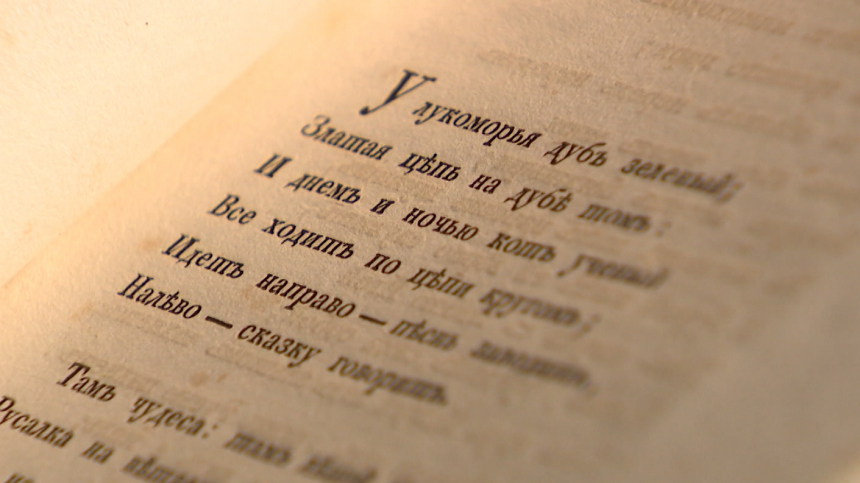 У лукоморья дубъ зеленый;
Златая цѣпь на дубѣ томъ:
И днемъ и ночью котъ ученый
Все ходитъ по цѣпи кругомъ;
Идетъ направо — пѣснь заводитъ,
Налѣво — сказку говоритъ.
Тамъ чудеса: тамъ лѣшій
Русалка на вѣтвяхъ